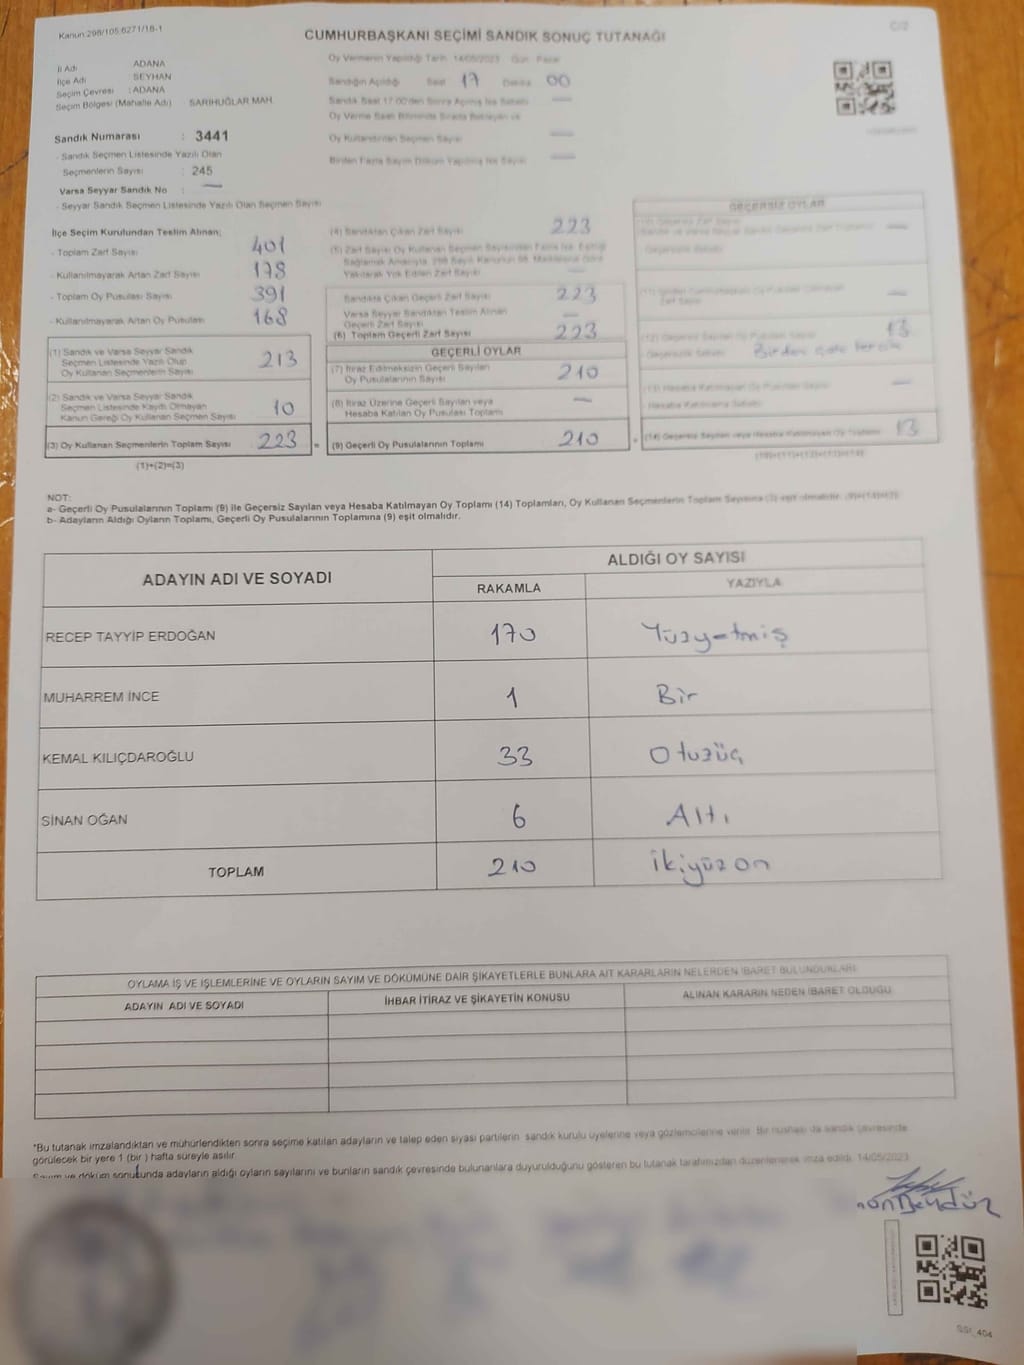 Kanun:298/105,6271/18-1
C/2
CUMHURBAŞKANI SEÇİMİ SANDIK SONUÇ TUTANAĞI
İl Adı ADANA
İlçe Adı SEYHAN
Seçim Çevresi : ADANA
Seçim Bölgesi (Mahalle Adı) SARIHUĞLAR MAH.
Sandık Numarası : 3441
- Sandık Seçmen Listesinde Yazılı Olan
Seçmenlerin Sayısı : 245
Varsa Seyyar Sandık No : —
- Seyyar Sandık Seçmen Listesinde Yazılı Olan Seçmen Sayısı
Oy Vermenin Yapıldığı Tarih 14/05/2023 Gün Pazar
Sandığın Açıldığı Saat 17 Dakika 00
Sandık Saat 17.00'den Sonra Açılmış İse Sebebi —
Oy Verme Saati Bitiminde Sırada Bekleyen ve
Oy Kullandırılan Seçmen Sayısı —
Birden Fazla Sayım Döküm Yapılmış İse Sayısı —
İlçe Seçim Kurulundan Teslim Alınan;
- Toplam Zarf Sayısı 401
- Kullanılmayarak Artan Zarf Sayısı 178
- Toplam Oy Pusulası Sayısı 391
- Kullanılmayarak Artan Oy Pusulası 168
(1) Sandık ve Varsa Seyyar Sandık
Seçmen Listesinde Yazılı Olup
Oy Kullanan Seçmenlerin Sayısı 213
(2) Sandık ve Varsa Seyyar Sandık
Seçmen Listesinde Kayıtlı Olmayan
Kanun Gereği Oy Kullanan Seçmen Sayısı 10
(3) Oy Kullanan Seçmenlerin Toplam Sayısı 223 =
(1)+(2)=(3)
(4) Sandıktan Çıkan Zarf Sayısı 223
(5) Zarf Sayısı Oy Kullanan Seçmen Sayısından Fazla İse, Eşitliği
Sağlamak Amacıyla, 298 Sayılı Kanunun 98. Maddesine Göre
Yakılarak Yok Edilen Zarf Sayısı —
Sandıkta Çıkan Geçerli Zarf Sayısı 223
Varsa Seyyar Sandıktan Teslim Alınan
Geçerli Zarf Sayısı —
(6) Toplam Geçerli Zarf Sayısı 223
GEÇERLİ OYLAR
(7) İtiraz Edilmeksizin Geçerli Sayılan
Oy Pusulalarının Sayısı 210
(8) İtiraz Üzerine Geçerli Sayılan veya
Hesaba Katılan Oy Pusulası Toplamı —
(9) Geçerli Oy Pusulalarının Toplamı 210 +
GEÇERSİZ OYLAR
(10) Geçersiz Zarf Sayısı
—
(11) —
Zarf Sayısı
(12) 13
(13) Hesaba Katılmayan Oy Pusulası Sayısı —
Hesaba Katılmama Sebebi
(14) Geçersiz Sayılan veya Hesaba Katılmayan Oy Toplamı 13
(10)+(11)+(12)+(13)=(14)
NOT:
a- Geçerli Oy Pusulalarının Toplamı (9) ile Geçersiz Sayılan veya Hesaba Katılmayan Oy Toplamı (14) Toplamları, Oy Kullanan Seçmenlerin Toplam Sayısına (3) eşit olmalıdır. (9)+(14)=(3)
b- Adayların Aldığı Oyların Toplamı, Geçerli Oy Pusulalarının Toplamına (9) eşit olmalıdır.
ADAYIN ADI VE SOYADI
ALDIĞI OY SAYISI
RAKAMLA YAZIYLA
RECEP TAYYİP ERDOĞAN 170 Yüzyetmiş
MUHARREM İNCE 1 Bir
KEMAL KILIÇDAROĞLU 33 Otuzüç
SİNAN OĞAN 6 Altı
TOPLAM 210 ikiyüzon
OYLAMA İŞ VE İŞLEMLERİNE VE OYLARIN SAYIM VE DÖKÜMÜNE DAİR ŞİKAYETLERLE BUNLARA AİT KARARLARIN NELERDEN İBARET BULUNDUKLARI
ADAYIN ADI VE SOYADI İHBAR İTİRAZ VE ŞİKAYETİN KONUSU ALINAN KARARIN NEDEN İBARET OLDUĞU
*Bu tutanak imzalandıktan ve mühürlendikten sonra seçime katılan adayların ve talep eden siyasi partilerin sandık kurulu üyelerine veya gözlemcilerine verilir. Bir nüshası da sandık çevresinde
görülecek bir yere 1 (bir ) hafta süreyle asılır.
Sayım ve döküm sonucunda adayların aldığı oyların sayılarını ve bunların sandık çevresinde bulunanlara duyurulduğunu gösteren bu tutanak tarafımızdan düzenlenerek imza edildi. 14/05/2023
SSt_404